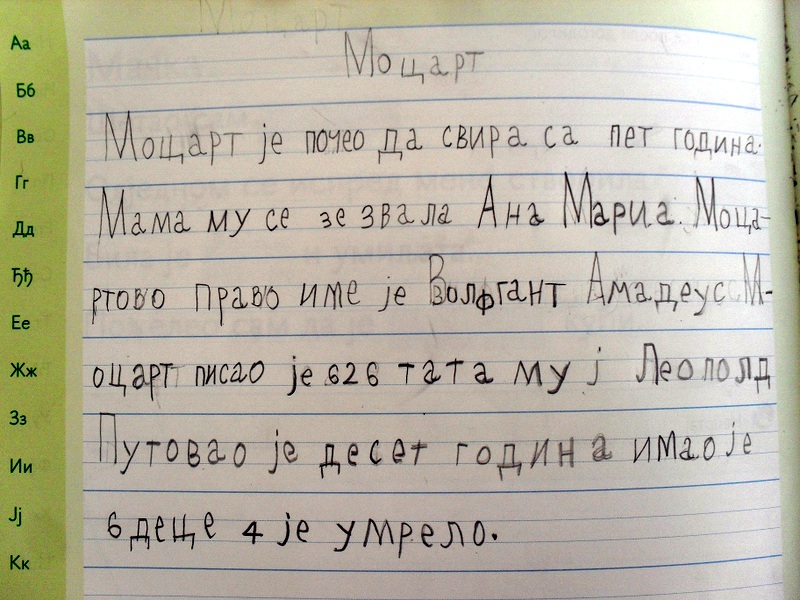 Моцарт
Моцарт је почео да свира са пет година.
Мама му се зе звала Ана Мариа. Моца-
ртово право име је Волфгант Амадеус М-
оцарт писао је 626 тата му ј Леополд
Путовао је десет година имао је
6 деце 4 је умрело.
Аа
Бб
Вв
Гг
Дд
Ђђ
Ее
Жж
Зз
Ии
Јј
Кк